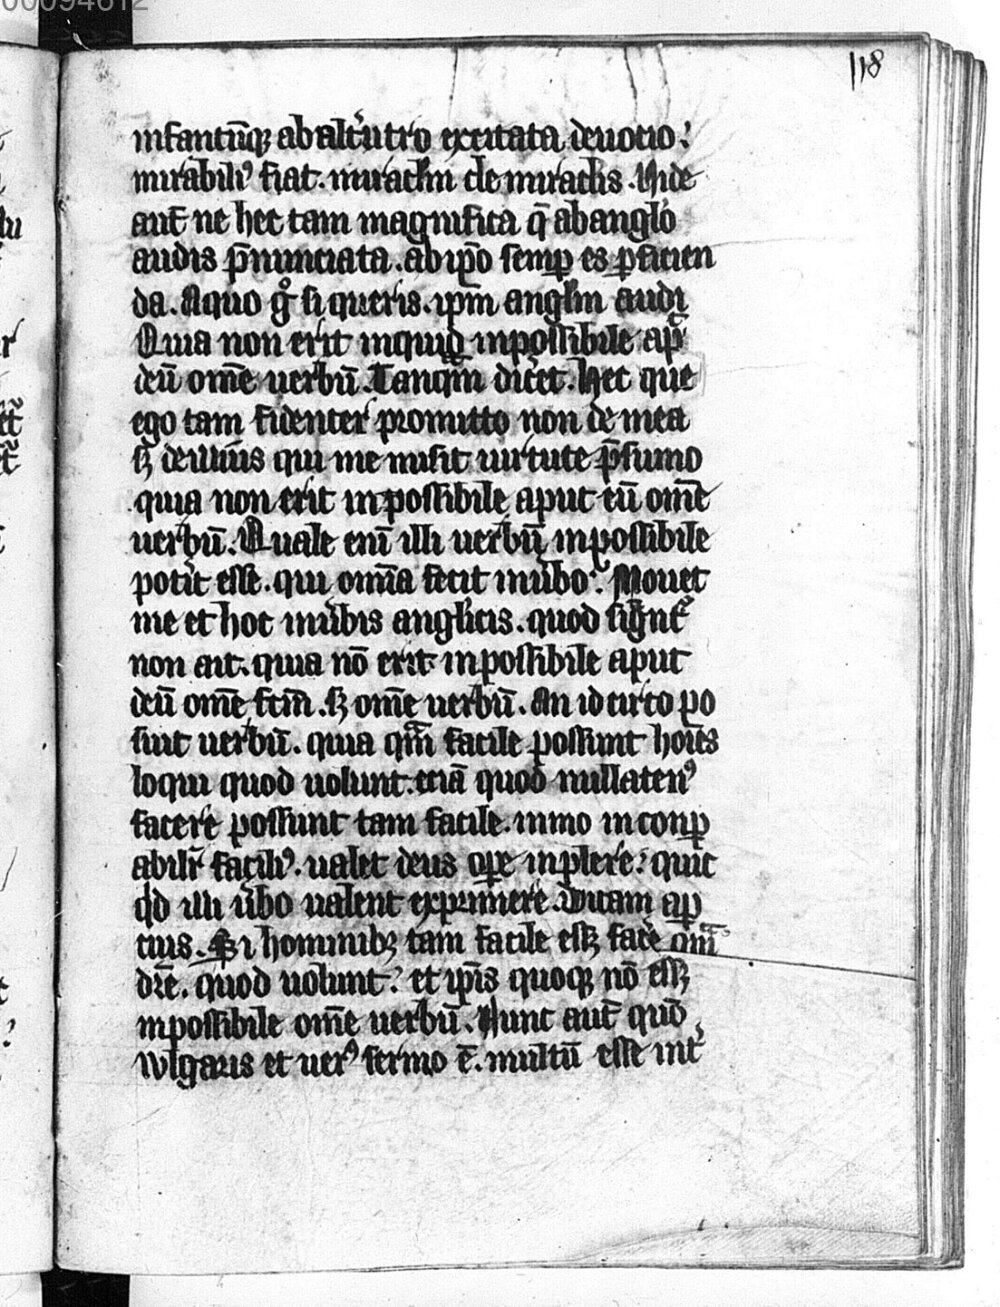 00094612
118
infantiūqꝫ ab alt͛utro excitata deuocio.
mirabiliꝰ fiat. miraclm̄ de miraclis. Vide
aut̄ ne hec tam magnifica q̄ ab anglo
audis p̄nunciata. ab ip̄o semꝑ es ꝑficien
da. A quo gͦ si queris. ip̄m anglm̄ audi
Quia non erit inquid inpossibile ap̄
deū om̄e uerbū. Tanqm̄ dic̄et. Hec que
ego tam fidenter promitto non de mea
sꝫ de illius qui me misit uirtute p̄sumo
quia non erit inpossibile aput eū om̄e
uerbū. Quale eni͞ illi uerbū inpossibile
pot̄it esse. qui om̄ia fecit in u͛bo. Mouet
me et hoc in u͛bis anglicis. quod
non ait. quia nō erit inpossibile aput
deū om̄e fcm̄. sꝫ om̄e uerbū. An idcirco po
suit uerbū. quia qm̄ facile possunt hoīēs
loqui quod uolunt. eciā quod nullatenꝰ
facere possunt tam facile. immo inconꝑ
abilr̄ faciliꝰ. ualet deus oꝑe inplere. quic
qd illi u͛bo ualent exprimere. Dicam aꝑ
cius. Si hominibꝫ tam facile essꝫ facere
dr̄e. quod uolunt. et ip̄is quoqꝫ nō essꝫ
inpossibile om̄e uerbū. Nunc aut̄ quō
wlgaris et uerꝰ sermo ē. multū esse int͛